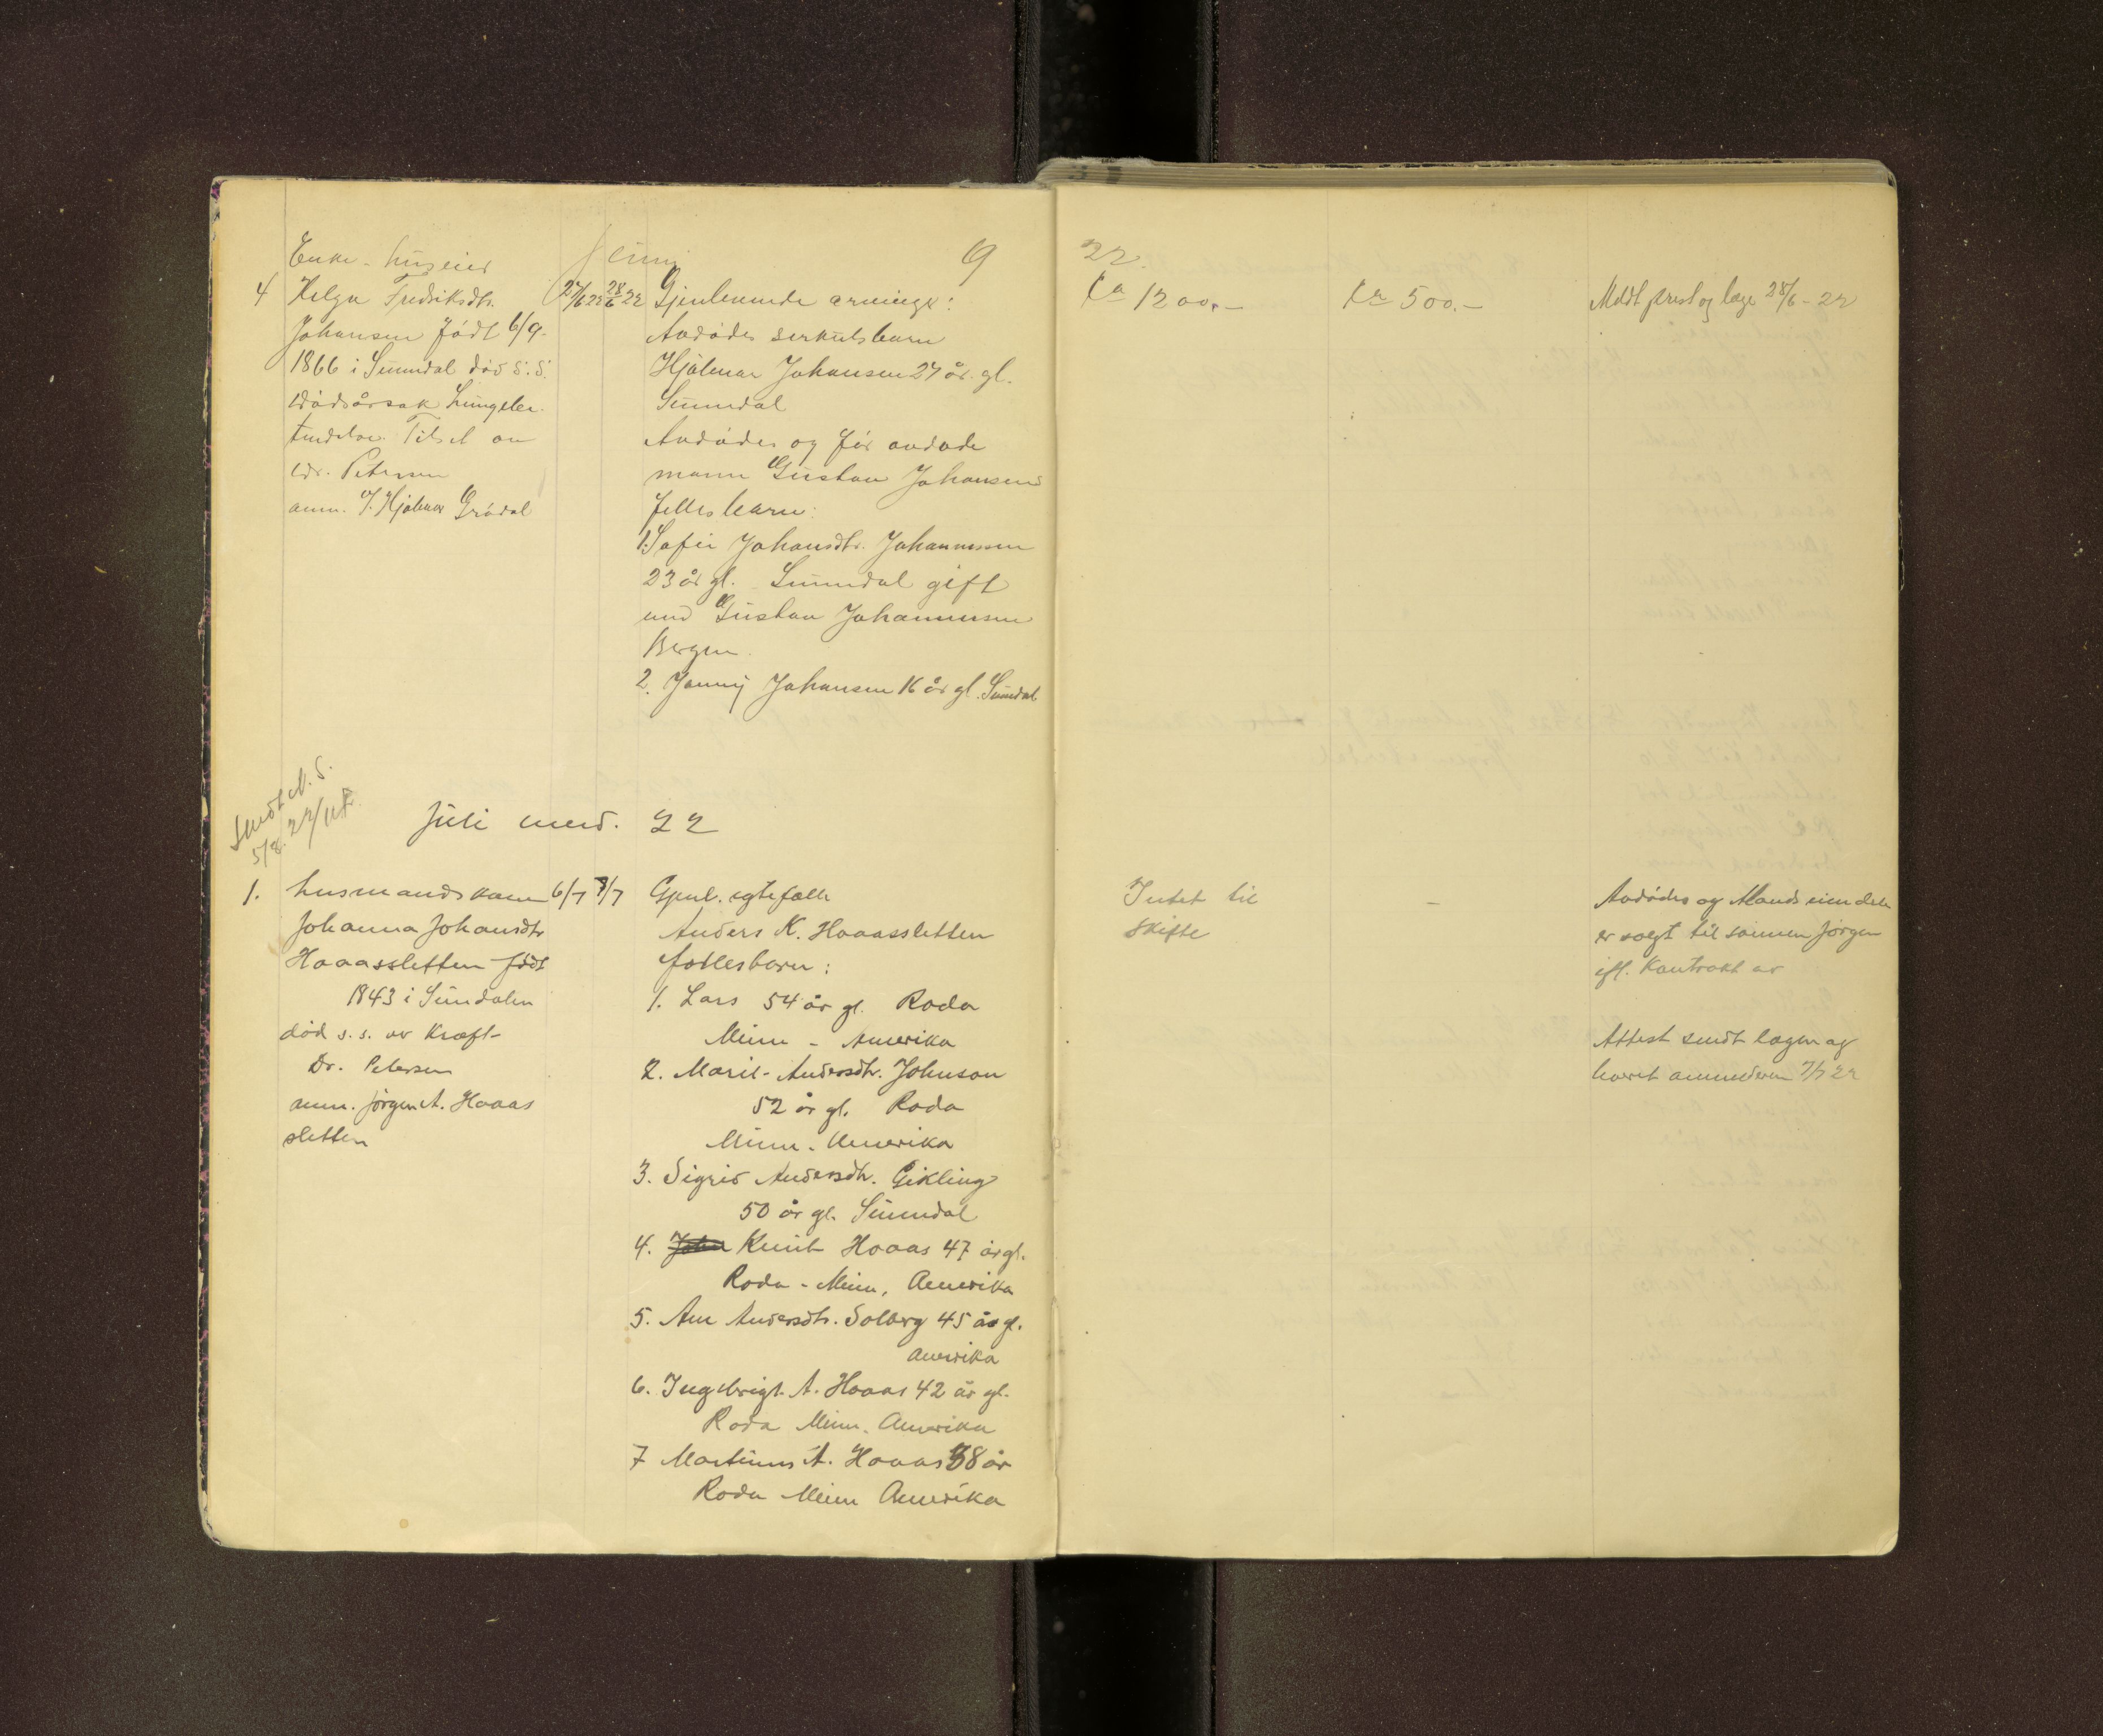 Juni 19 22.
Enke-huseier
4 Helga Fredriksdtr.
Johansen født 6/9-
1866 i Sunndal død s. s.
dødsårsak Lungebe-
tendelse. Tilset av
dr. Petersen
anm. J. Hjalmar Grødal
27/6 22 28/6 22
Gjenlevende arvinge:
Avdødes serkulsbarn
Hjalmar Johansen 27 år. gl.
Sunndal
Avdødes og før avdøde
mann Gustav Johansens
fellesbarn:
1. Sofie Johansdtr. Johannessen
23 år gl. Sunndal gift
med Gustav Johannessen
Bergen.
2. Jenny Johansen 16 år gl. Sunndal
ca 1200.-
ca 500.-
Meldt prest og læge 28/6-22
Sendt N. S.
5/8. 22
Juli mnd. 22
1. husmandskone 6/7 7/7
Johanna Johansdtr
Haaassletten født
1843 i Sundalen
død s. s. av Kræft-
Dr. Petersen
anm. Jørgen A. Haaas
sletten
Gjenl. egtefælle
Anders K. Haaassletten
fællesbarn:
1. Lars 54 år gl. Roda
Minn - Amerika
2. Marit Andersdtr. Johnson
52 år gl. Roda
Minn. Amerika
3. Sigrid Andersdtr. Gikling
50 år gl. Sunndal
4. John Knut Haaas 47 år gl.
Roda - Minn, Amerika
5. Ane Andersdtr. Solberg 45 år gl.
Amerika
6. Ingebrigt A. Haaas 42 år gl.
Roda Minn. Amerika
7 Martinus A. Haaas 38 år
Roda Minn Amerika
Intet til
skifte
-
Avdødes og Mands eiendele
er solgt til sønnen Jørgen
ifl. Kontrakt av
Attest sendt lægen og
levert anmelderen 7/7 22